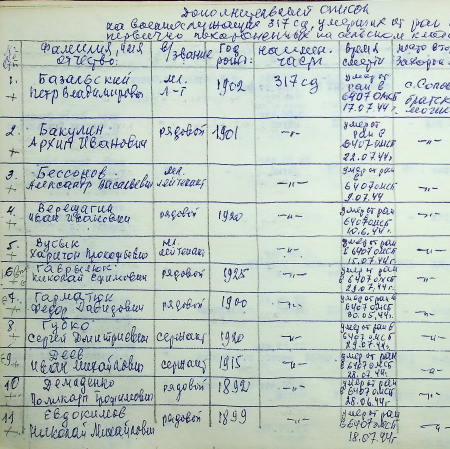 Дополнительный список
на военнослужащих 317 сд, умерших от ран
первично похороненных на сельском кладб
Фамилия, имя отчество: в/звание Год рожд. наимен. части Время смерти место втор. захорон.
1. Базальский Петр Владимирович мл. л-т 1902 317 сд умер от ран в 6407 омсб 17.07.44г. братск. могила
2. Бакулин Архип Иванович рядовой 1901 -"- умер от ран в 6407 омсб 22.07.44г. -"-
3. Бессонов Александр мл. лейтенант -"- умер от ран в 6407 омсб 9.07.44 -"-
4. Верещагин Иван Иванович рядовой 1920 -"- умер от ран 6407 омсб 10.6.44г. -"-
5. Вусык Харитон Прокофьевич мл. лейтенант -"- умер от ран в 6407 омсб 15.07.44г. -"-
6 Гаврылюк Николай Ефимович рядовой 1925 -"- умер от ран в 6407 омсб 29.07.44г. -"-
7. Гарматюк Федор Давидович рядовой 1900 -"- умер от ран в 6407 омсб 30.05.44г. -"-
8 Гуско Сергей Дмитриевич сержант 1920 -"- умер от ран в 6407 омсб 29.07.44г. -"-
9. Деев Иван Михайлович сержант 1915 -"- умер от ран в 6407 омсб 28.07.44г. -"-
10 Демаденко Поликарп рядовой 1892 -"- умер от ран в 6407 омсб 28.06.44г. -"-
11 Евдокимов Николай Михайлович рядовой 1899 -"- умер от ран в 6407 омсб 18.07.44г -"-